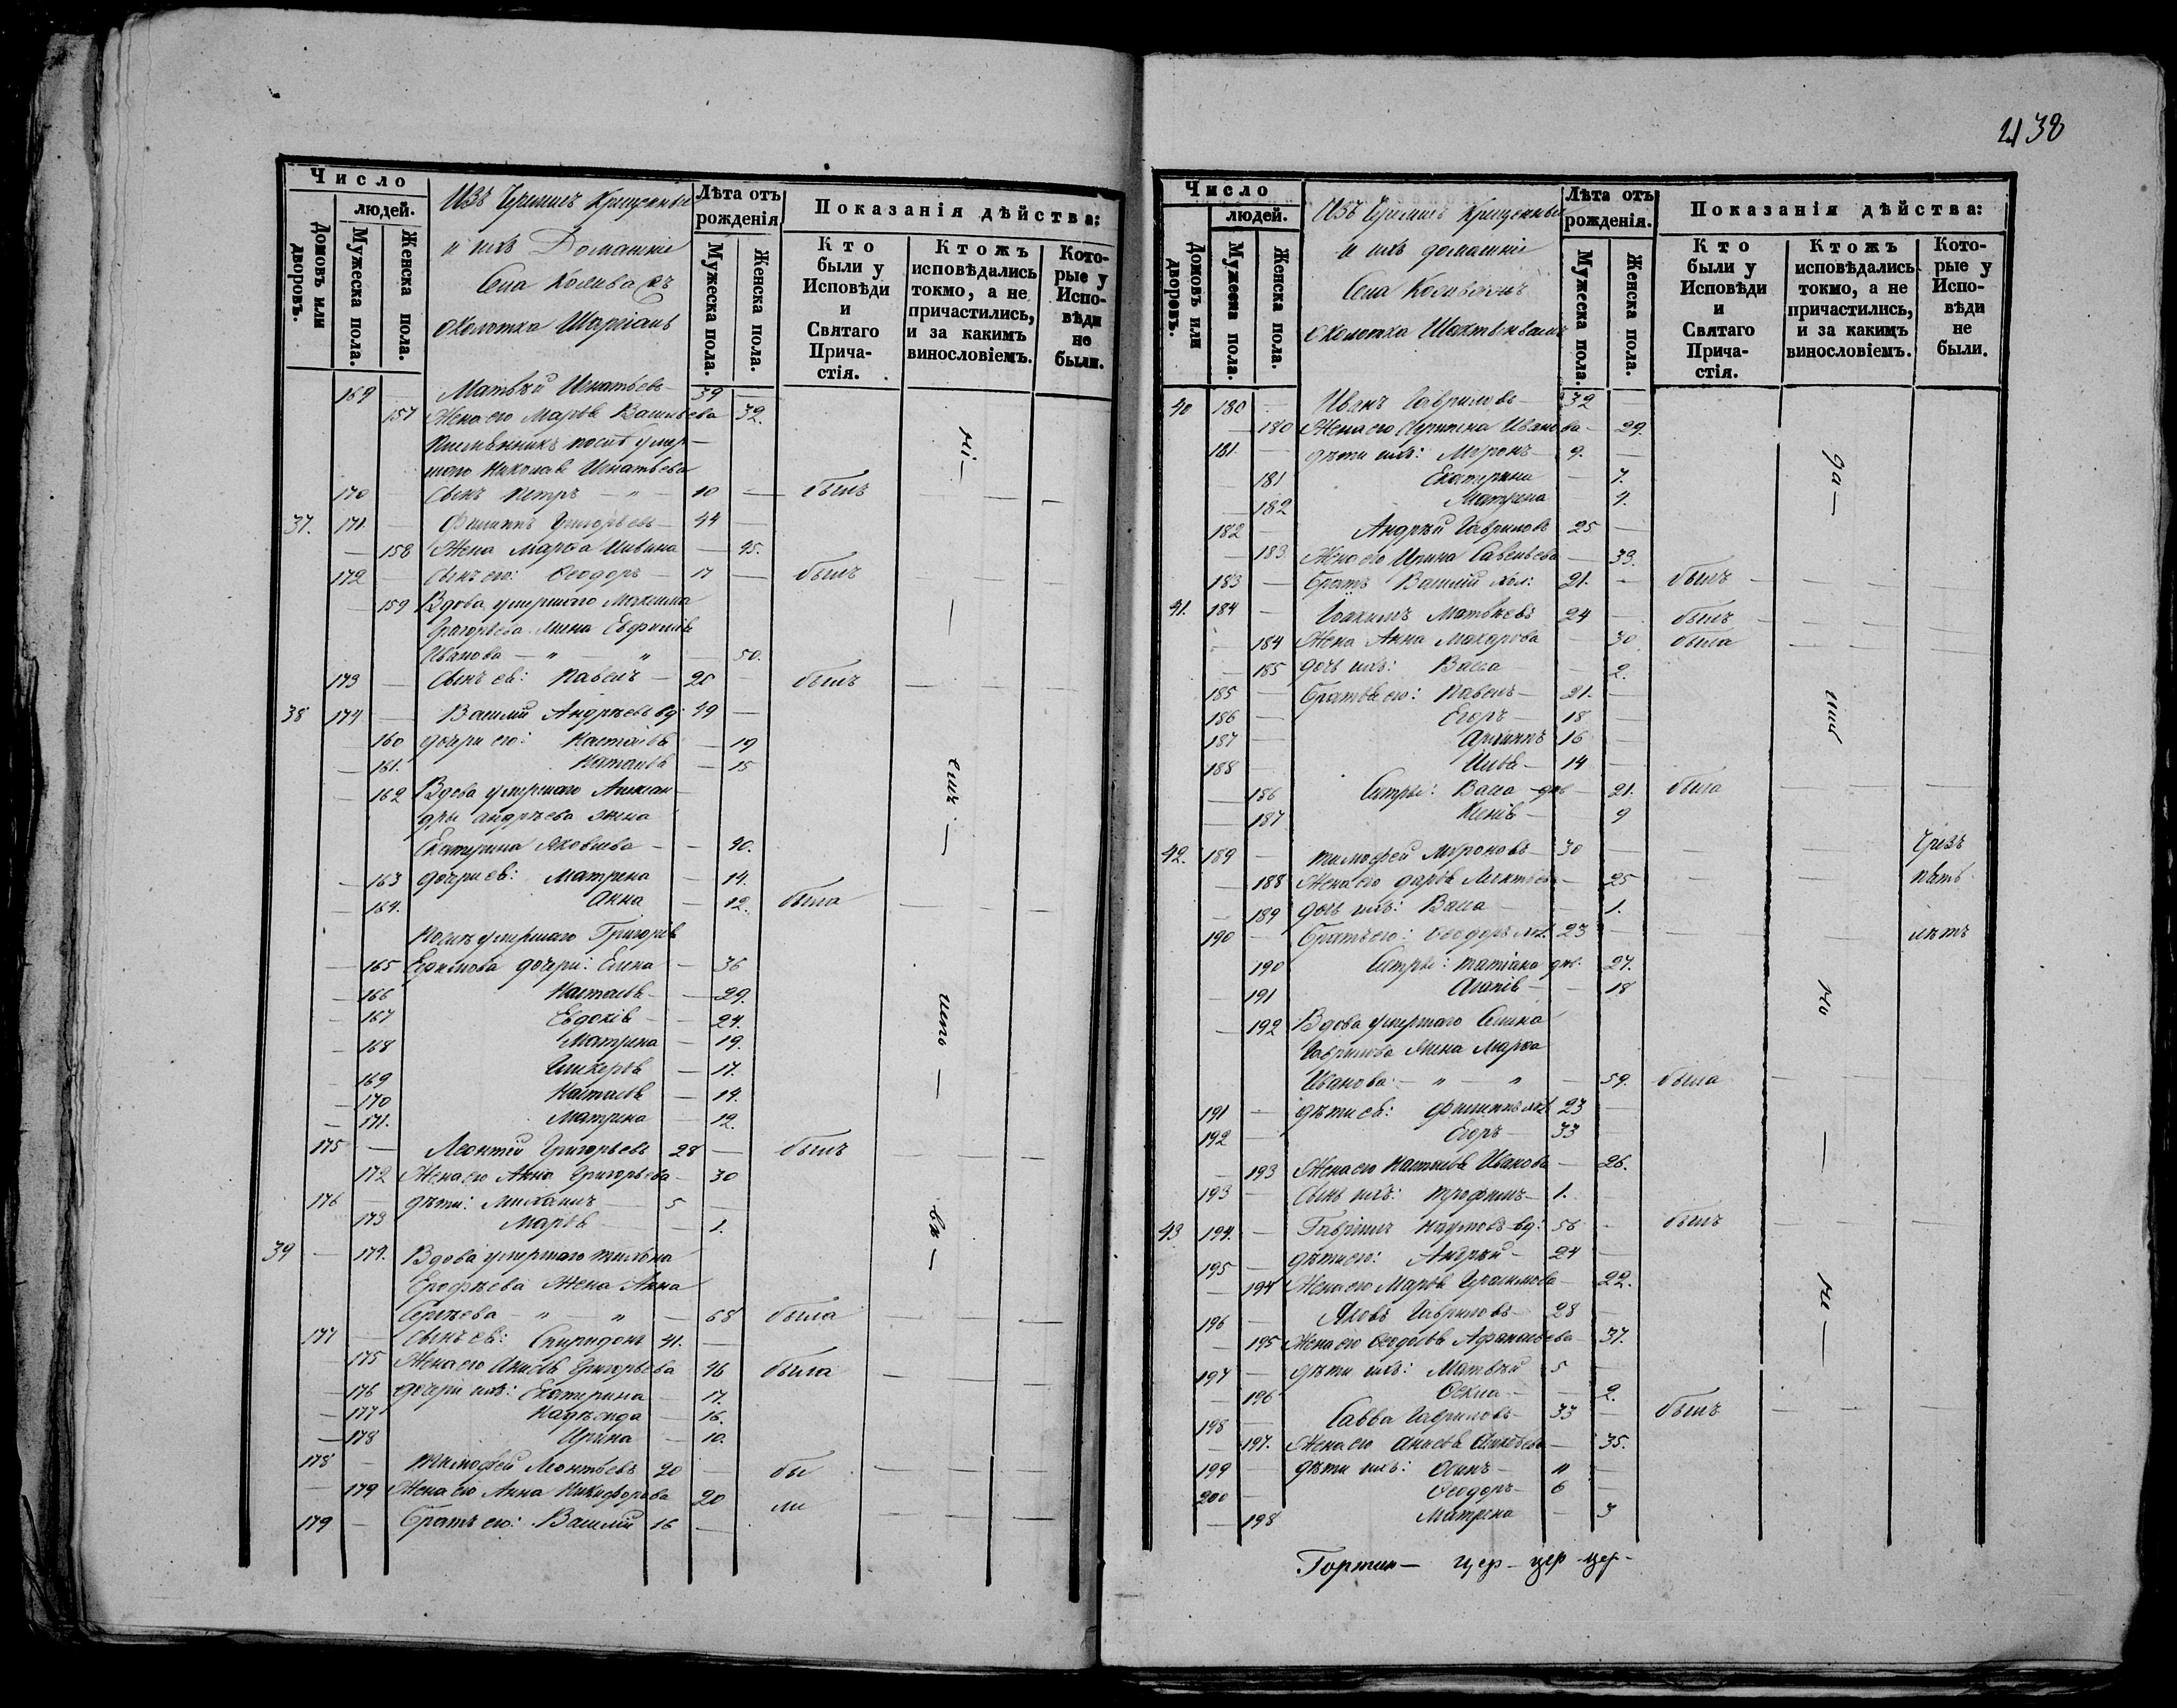 438
Число
людей.
Домовъ или дворовъ.
Мужеска пола.
Женска пола.
Изъ Черемисъ Крещеныхъ
и ихъ Домашніе
Села
околотка
Лѣта отъ рожденія
Мужеска пола.
Женска пола.
Показанія дѣйства:
Кто были у Исповѣди и Святаго Причастія.
Ктожъ исповѣдались токмо, а не причастились, и за какимъ винословіемъ.
Которые у Исповѣди не были.
169 — Матвѣй Игнатьевъ 39 —
157 Жена его Марѳа Васильева 39.
Племянникъ послѣ умер-
шаго Николая Игнатьева
170 — Сынъ Петръ — " — 10 — былъ
37. 171. — Филиппъ Григорьевъ 44 —
— 158 Жена Марѳа Ильина — 45.
172 — Сынъ его: Ѳеодоръ 17 — былъ
— 159 Вдова умершаго Максима
Григорьева жена
Иванова — " — " — 50.
173 — Сынъ ея: Павелъ 20 — былъ
38 174 — Василій Андреевъ вд: 49 —
160 Дочери его: Настасія — 19
— 161. Наталія — 15
— 162 Вдова умершаго Алексан-
дры Андреева жена
Екатерина Яковлева — 40.
— 163 Дочери ея: Матрена — 14.
— 164. Анна — 12. была
Послѣ умершаго Григорія
— 165 Ефимова дочери: Елена — 36
— 166 Настасія — 29.
— 167 Евдокія — 24.
— 168 Матрена — 19.
— 169 Гликерія — 17.
— 170 Настасія — 14.
— 171. Матрена — 12.
175 — Леонтій Григорьевъ 28 — былъ
172 Жена его Анна Григорьева — 30
176 — Дѣти: Михаилъ 5 —
173 Марія — 1.
39 — 174. Вдова умершаго
Ерофѣева Жена Анна
Сергѣева — " — " — 68 была
177 — Сынъ ея: Спиридонъ 41. —
— 175 Жена его Анисія Григорьева 46 была
— 176 Дочери ихъ: Екатерина — 17.
— 177 Надежда — 16.
— 178 Ирина — 10.
178 — Тимоѳей Леонтьевъ 20 — бы
— 179 Жена его Анна Никифорова 20 ли
179 — Братъ его: Василій 16 —
Число
людей.
Домовъ или дворовъ.
Мужеска пола.
Женска пола.
Изъ Черемисъ Крещеныхъ
и ихъ домашніе
Села
околотка
Лѣта отъ рожденія.
Мужеска пола.
Женска пола.
Показанія дѣйства:
Кто были у Исповѣди и Святаго Причастія.
Ктожъ исповѣдались токмо, а не причастились, и за какимъ винословіемъ.
Которые у Исповѣди не были.
40 180 — Иванъ Гавриловъ 32 —
— 180 Жена его Иванова — 29.
181. — дѣти ихъ: Миронъ 9. —
— 181 Екатерина — 7.
— 182 Матрена — 4.
182 — Андрей Гавриловъ 25 —
— 183 Жена его Ирина Савельева — 33.
183 — Братъ Василій хол: 21. — былъ
41. 184 — Іоакимъ Матвѣевъ 24 — былъ
— 184 Жена Анна Макарова — 30 была
— 185 дочь ихъ: Васса — 2.
185 — Братья его: Павелъ 21. —
186 — Егоръ 18 —
187 — Архиппъ 16 —
188 — Илья 14 —
— 186 Сестры: Васса дѣв — 21. была
— 187 Ксенія — 9
42. 189 — Тимоѳей Мироновъ 30 — Чрезъ
— 188 Жена его Дарія — 25 пять
— 189 дочь ихъ: Васса — 1.
190 — Братъ его: Ѳеодоръ хол. 23 — лѣтъ
190 Сестры: Татіана дѣв. 27.
— 191 Агапія — 18
— 192 Вдова умершаго
Гаврилова Жена Марѳа
Иванова — " — " — 59. была
191 — дѣти ея: Филиппъ хол. 23 —
192 — Егоръ 33 —
— 193 Жена его Иванова — 26.
193 — Сынъ ихъ: Трофимъ 1. —
43 194. — Гавріилъ Наумовъ вд: 56 — былъ
195 — дѣти его: Андрей 24 —
— 194 Жена его Марія Герасимова — 22.
196 — Яковъ Гавриловъ 28 —
— 195 Жена его Ѳеодосія Афанасьева — 37.
197 — дѣти ихъ: Матвѣй 5 —
— 196 Ѳекла — 2.
198 — Савва Гавриловъ 33 — былъ
— 197. Жена его Анисія — 35.
199 — дѣти ихъ: Осипъ " —
200 — Ѳеодоръ 6 —
— 198 Матрена — 3